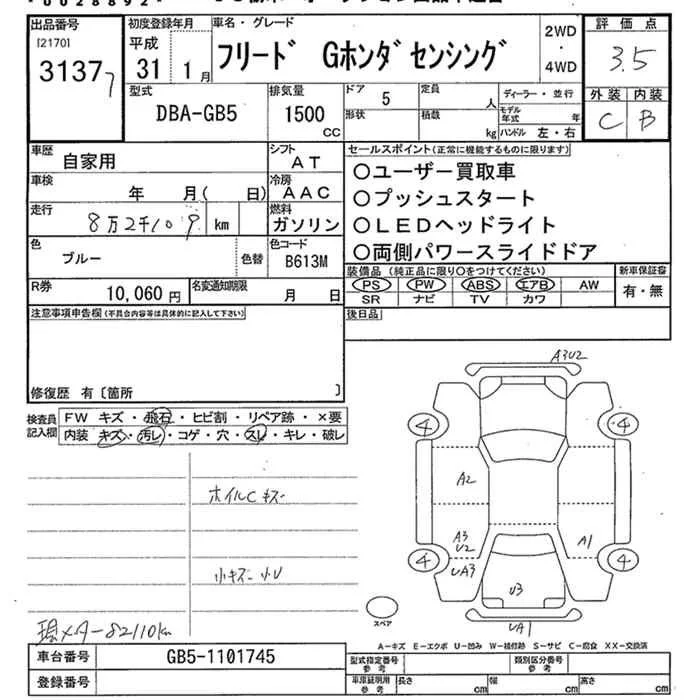 出品番号
[2170]
31377
初度登録年月
平成
31 1月
車名・グレード
フリード Gホンダセンシング
2WD
・
4WD
評価点
3.5
外装 内装
C B
型式
DBA-GB5
排気量
1500
CC
ドア 5
形状
定員
人
積載
kg
ディーラー・並行
モデル年式 年
ハンドル 左・右
車歴
自家用
シフト
AT
車検
年 月( 日)
冷房
AAC
走行
8万2千109 km
燃料
ガソリン
色
ブルー
色替
色コード
B613M
R券
10,060 円
名変通知期限
月 日
セールスポイント(正常に機能するものに限ります)
○ユーザー買取車
○プッシュスタート
○LEDヘッドライト
○両側パワースライドドア
装備品(純正品に限り○をつけてください)
PS PW ABS エアB AW
SR ナビ TV カワ
新車保証書
有・無
注意事項申告欄(不具合内容等は具体的に記入して下さい)
後日品
修復歴 有〔箇所 〕
検査員記入欄
FW キズ・飛石・ヒビ割・リペア跡・×要
内装 キズ・汚レ・コゲ・穴・スレ・キレ・破レ
ホイルCキズ
小キズ小U
現メーター82110km
A3U2
4
4
A2
A3
U2
UA3
A1
4
4
U3
UA1
スペア
A-キズ E-エクボ U-凹み W-補修跡 S-サビ C-腐食 XX-交換済
車台番号
GB5-1101745
登録番号
型式指定番号
参考
類別区分番号
参考
車庫証明用
参考
長さ cm
幅 cm
高さ cm